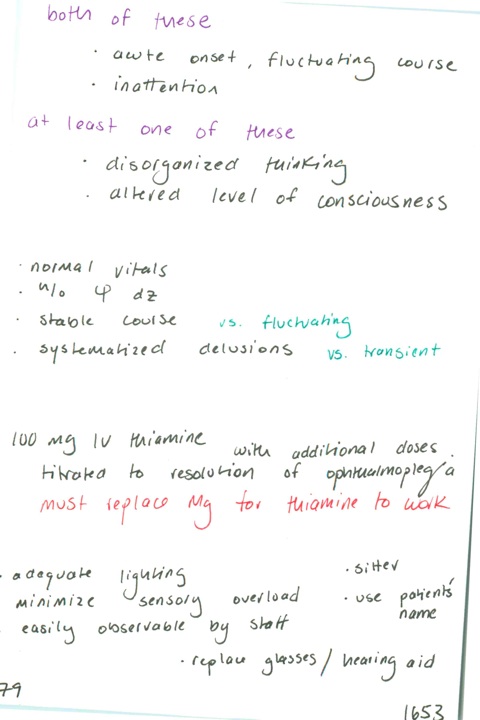 both of these
· acute onset, fluctuating course
· inattention
at least one of these
· disorganized thinking
· altered level of consciousness
· normal vitals
· h/o ψ dz
· stable course vs. fluctuating
· systematized delusions vs. transient
100 mg IV thiamine with additional doses
titrated to resolution of ophthalmoplegia
must replace Mg for thiamine to work
· adequate lighting · sitter
minimize sensory overload · use patients' name
easily observable by staff
· replace glasses / hearing aid
79
1653